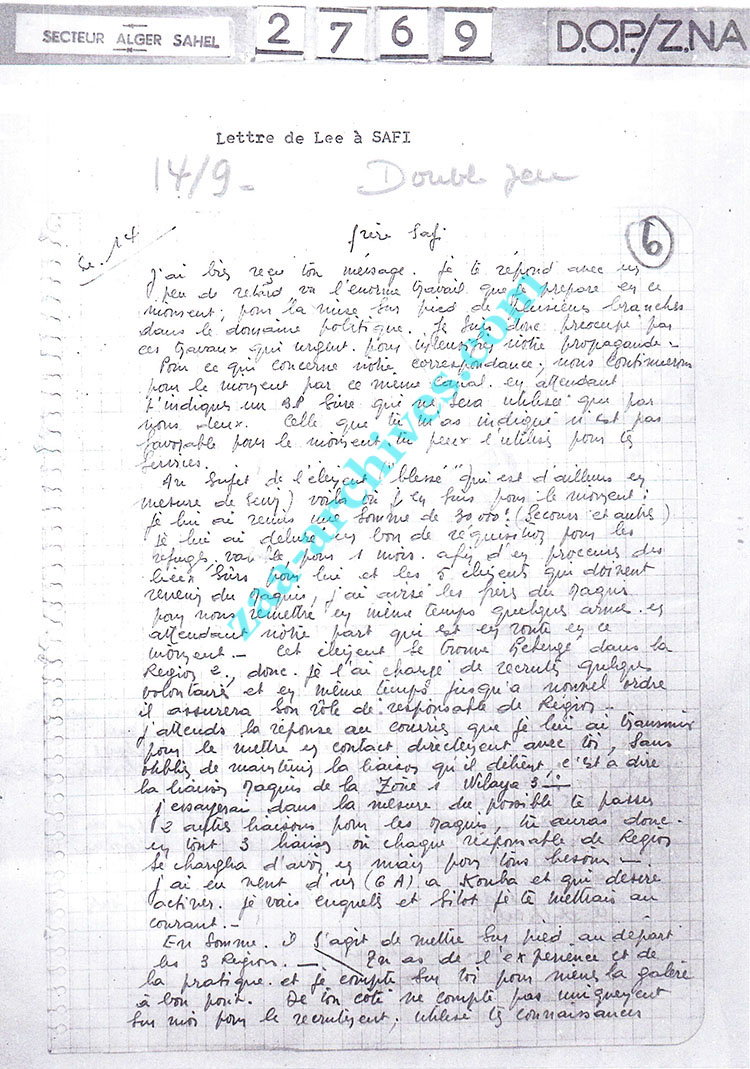 SECTEUR ALGER SAHEL
2 7 6 9
D.O.P/Z.NA
Lettre de Lee à SAFI
14/9 - Double jeu
Le. 14
frère Safi
6
J'ai bien reçu ton message. Je te répond avec un
peu de retard vu l'enorme travail que je prepare en ce
moment, pour la mise sur pied de plusieurs branches
dans le domaine politique. Je suis donc preocupé par
ces travaux qui urgent pour intensifier notre propagande -
Pour ce qui concerne notre correspondance, nous continuerons
pour le moment par ce meme canal. en attendant
t'indiquer un BP sûre qui ne sera utilisée que par
nous deux. Celle que tu m'as indiqué n'est pas
favorable pour le moment. tu peux l'utiliser pour tes
services.
Au sujet de l'élément "blessé" (qui est d'ailleurs en
mesure de servir) voila où j'en suis pour le moment :
je lui ai remis une somme de 30,000! (Secours et autres)
Je lui ai délivré un bon de réquisition pour les
refuges valable pour 1 mois. afin d'en procurer des
lieux sûrs pour lui et les 5 éléments qui doivent
revenir du Maquis, j'ai avisé les frères du Maquis
pour nous remettre en même temps quelques armes. en
attendant notre part qui est en route en ce
moment. - Cet élément se trouve heberge dans la
Region 2, donc. Je l'ai chargé de recruter quelques
volontaires et en même temps jusqu'a nouvel ordre
il assurera son rôle de responsable de Region -
j'attends la réponse au courrier que je lui ai transmis
pour le mettre en contact directement avec toi, sans
oublier de maintenir la liaison qu'il détient, c'est à dire
la liaison Maquis de la Zone 1 Wilaya 3 -
J'essayerai dans la mesure du possible te passer
2 autres liaisons pour les Maquis, tu auras donc.
en tout 3 liaisons où chaque responsable de Region
se chargera d'avoir en main pour tous besoins -
j'ai eu vent d'un (G A) a Kouba et qui désire
activer. Je vais enquêter et sitot je te mettrais au
courant. -
En Somme. il s'agit de mettre sur pied au départ
les 3 Region. - Tu as de l'experience et de
la pratique. et je compte sur toi pour mener la galère
à bon port. De ton coté ne compte pas uniquement
sur moi pour le recrutement, utilise tes connaissances
zaa-archives.com